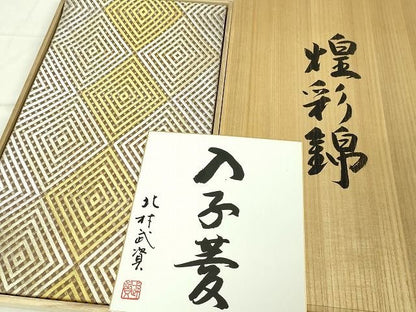 煌彩錦
入子菱
北村武資